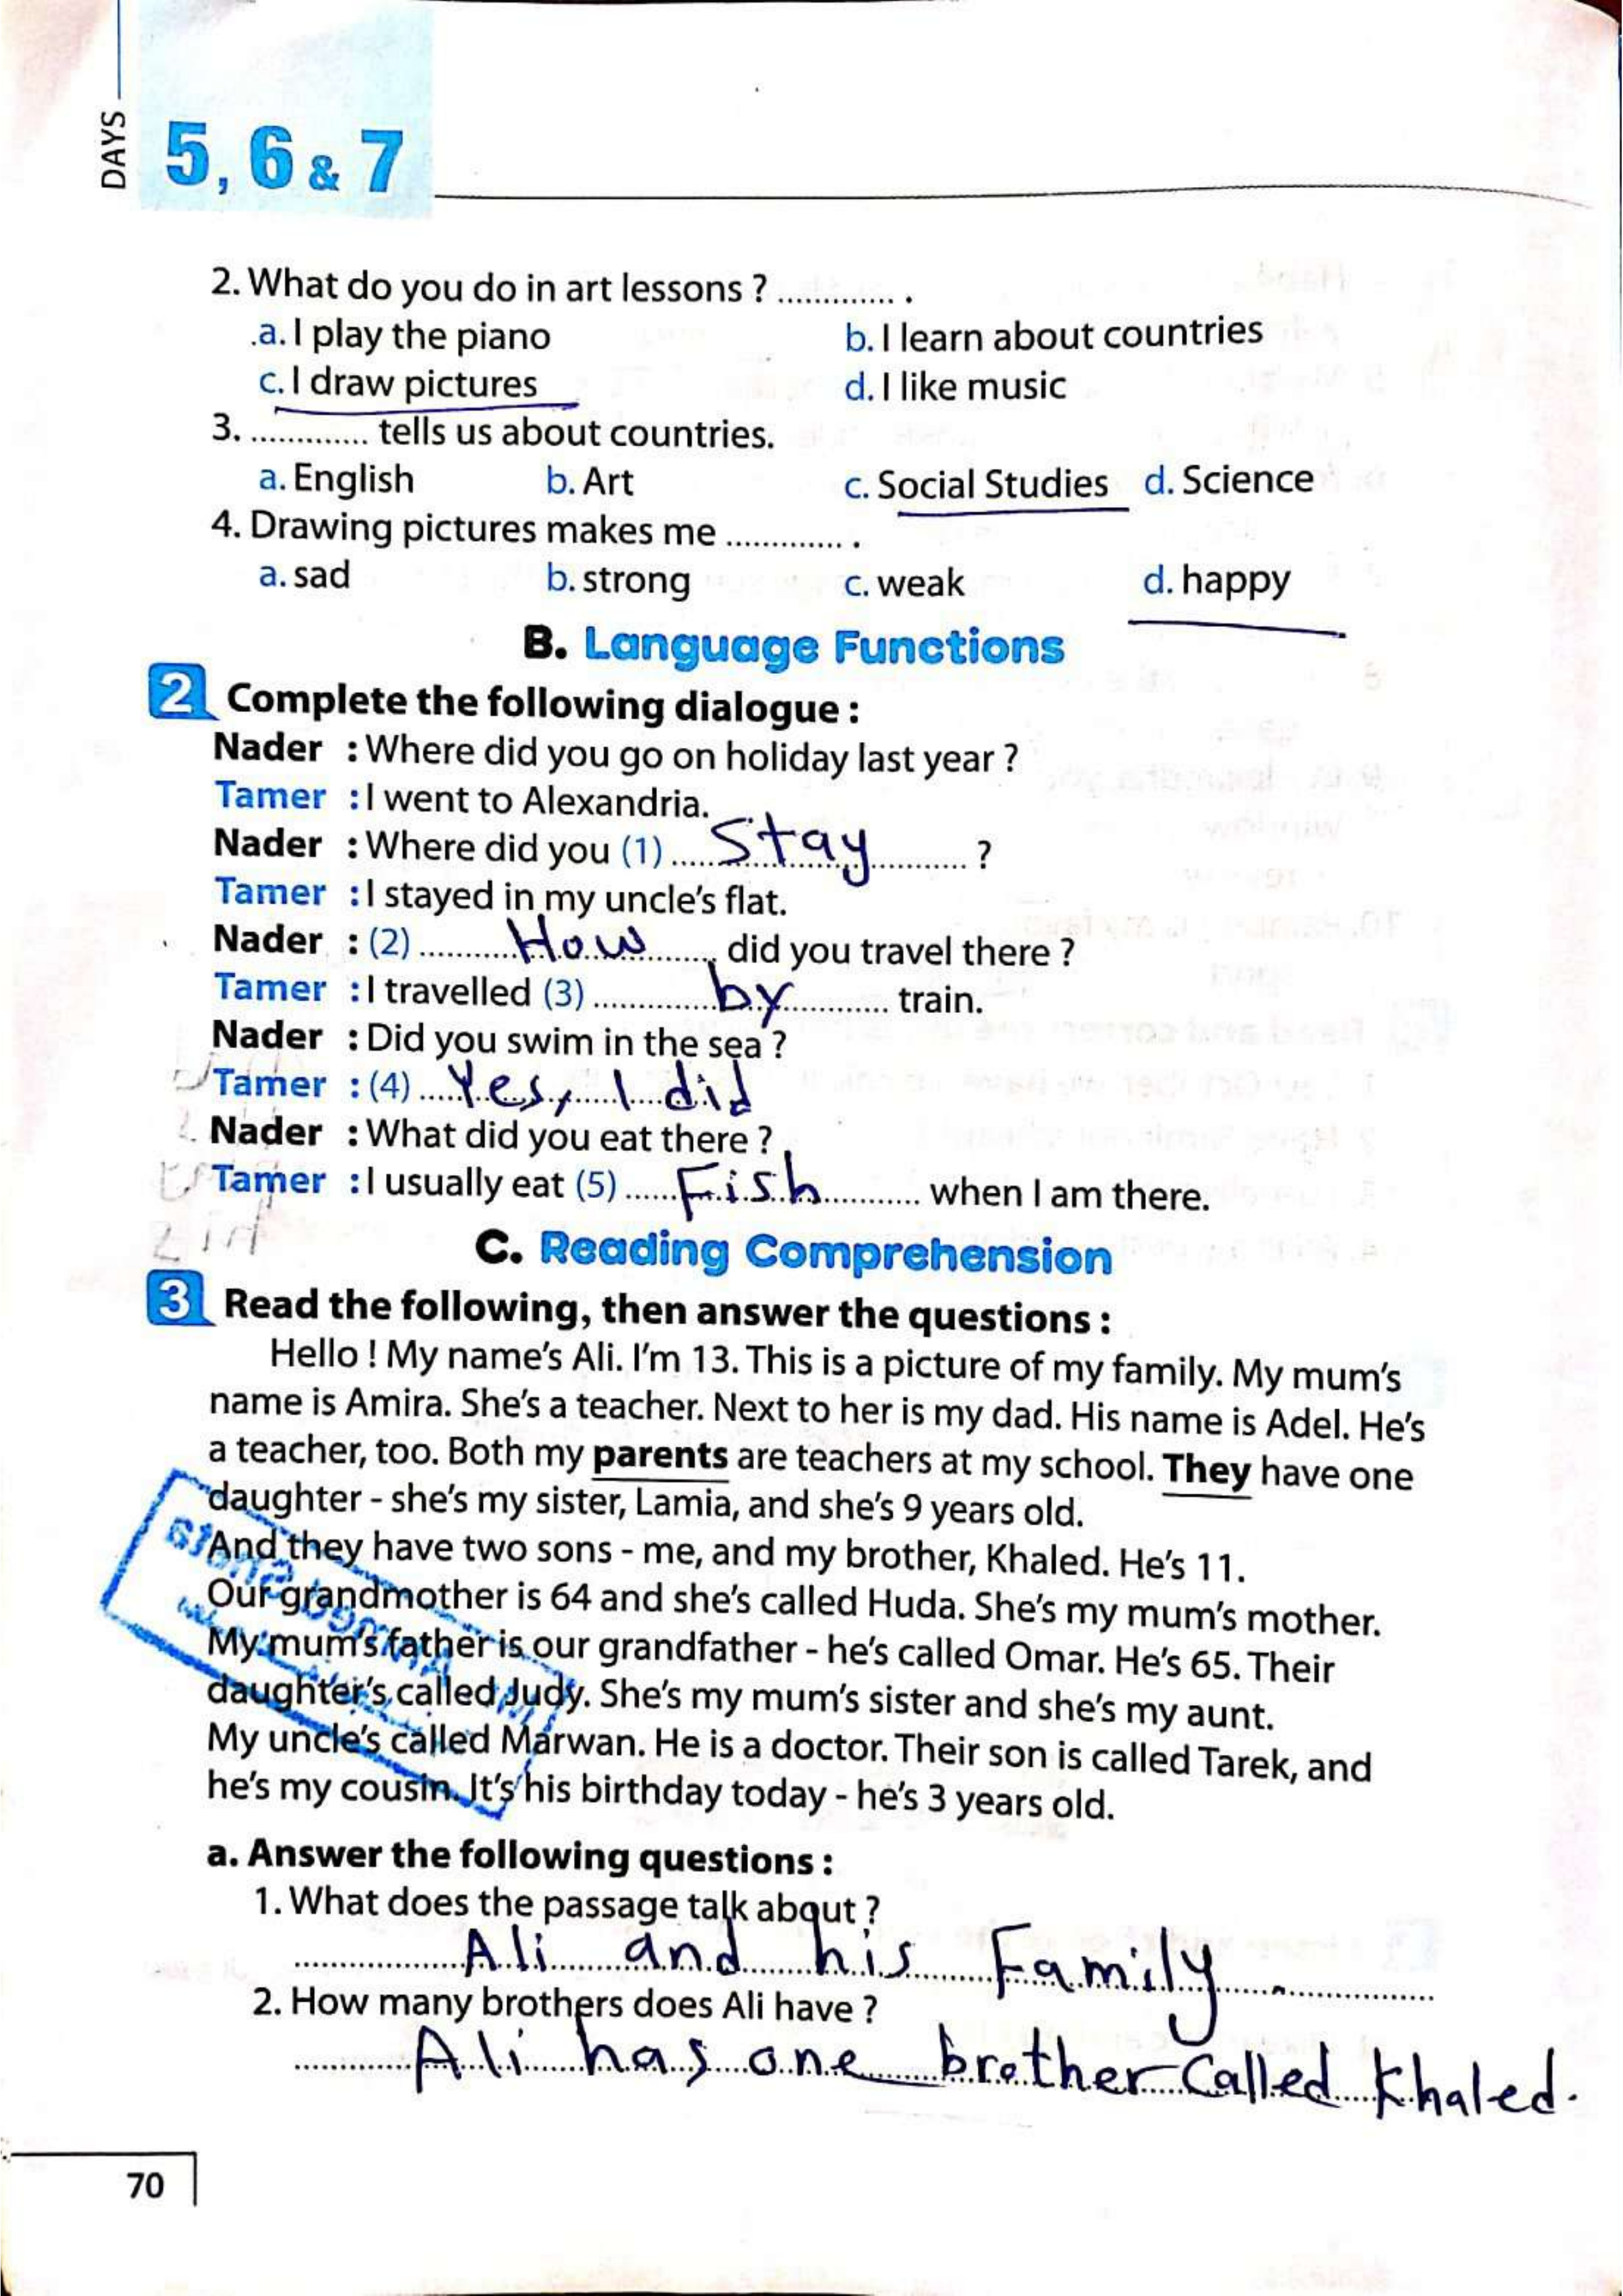 DAYS
5, 6 & 7
2. What do you do in art lessons ? ............. .
.a. I play the piano b. I learn about countries
c. I draw pictures d. I like music
3. ............. tells us about countries.
a. English b. Art c. Social Studies d. Science
4. Drawing pictures makes me ............. .
a. sad b. strong c. weak d. happy
B. Language Functions
2 Complete the following dialogue :
Nader : Where did you go on holiday last year ?
Tamer : I went to Alexandria.
Nader : Where did you (1) Stay ?
Tamer : I stayed in my uncle's flat.
Nader : (2) How did you travel there ?
Tamer : I travelled (3) by train.
Nader : Did you swim in the sea ?
Tamer : (4) Yes, I did
Nader : What did you eat there ?
Tamer : I usually eat (5) Fish when I am there.
C. Reading Comprehension
3 Read the following, then answer the questions :
Hello ! My name's Ali. I'm 13. This is a picture of my family. My mum's
name is Amira. She's a teacher. Next to her is my dad. His name is Adel. He's
a teacher, too. Both my parents are teachers at my school. They have one
daughter - she's my sister, Lamia, and she's 9 years old.
And they have two sons - me, and my brother, Khaled. He's 11.
Our grandmother is 64 and she's called Huda. She's my mum's mother.
My mum's father is our grandfather - he's called Omar. He's 65. Their
daughter's called Judy. She's my mum's sister and she's my aunt.
My uncle's called Marwan. He is a doctor. Their son is called Tarek, and
he's my cousin. It's his birthday today - he's 3 years old.
a. Answer the following questions :
1. What does the passage talk about ?
Ali and his Family.
2. How many brothers does Ali have ?
Ali has one brother Called Khaled.
70